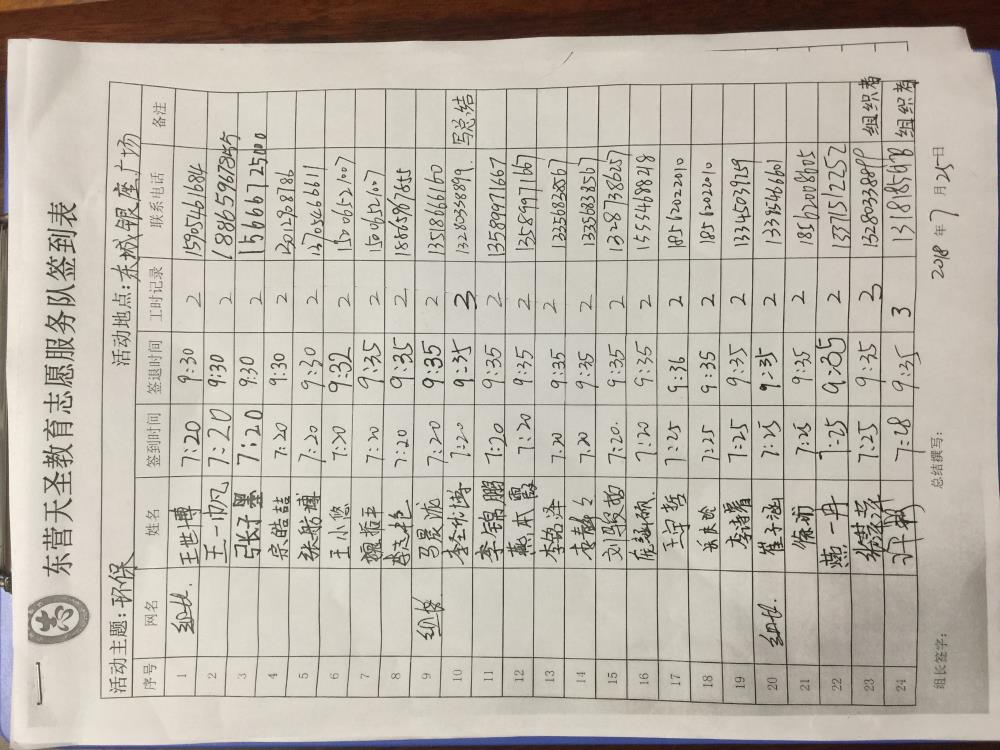 东营天圣教育志愿服务队签到表
活动主题：环保 活动地点：东城银座广场
序号 网名 姓名 签到时间 签退时间 工时记录 联系电话 备注
1 组长. 王世博 7:20 9:30 2 15905461684
2 王一帆 7:20 9:30 2 18865967845
3 张子墨 7:20 9:30 2 15666725000
4 宗皓喆 7:20 9:30 2
5 张航博 7:20 9:30 2 13705466611
6 王小悠 7:20 9:32 2 15006521007
7 7:20 9:35 2 15006521007
8 7:20 9:35 2 18065967655
9 组长 马晨派 7:20 9:35 2 13518666160
10 李金博 7:20 9:35 3 13280338899. 写总结
11 李锦鹏 7:20 9:35 2 13589971667
12 燕本霞 7:20 9:35 2 13589971667
13 李铭泽 7.20 9.35 2 13356838567
14 7.20 9:35 2 13356838567
15 刘骏 7:20. 9:35 2 13287386257
16 7:20 9:35 2 15554698218
17 王宇哲 7:25 9:36 2 18562022010
18 7:25 9:35 2 18562022010
19 7:25 9:35 2 13345039159
20 组长. 崔子涵 7:25 9:35 2 13395466601
21 徐甫 7:25 9:35 2 18562008605
22 燕一丹 7:25 9:35 2 13371512252
23 7:25 9:35 3 13280338899 组织者
24 7:28 9:35 3 1318185698 组织者
组长签字： 总结撰写： 2018 年 7 月 25 日